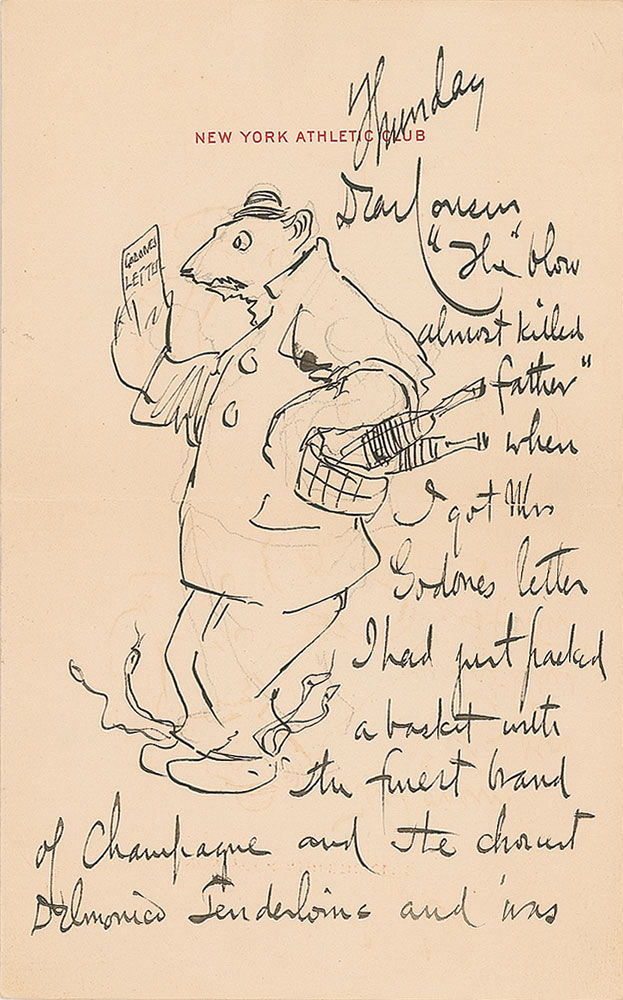 Thursday
NEW YORK ATHLETIC CLUB
Dear Cousin
"The" blow
almost killed
father"
when
I got Mrs
Godones letter
I had just packed
a basket with
the finest brand
of Champagne and the choicest
Delmonico Tenderloins and was
GODONES
LETTER